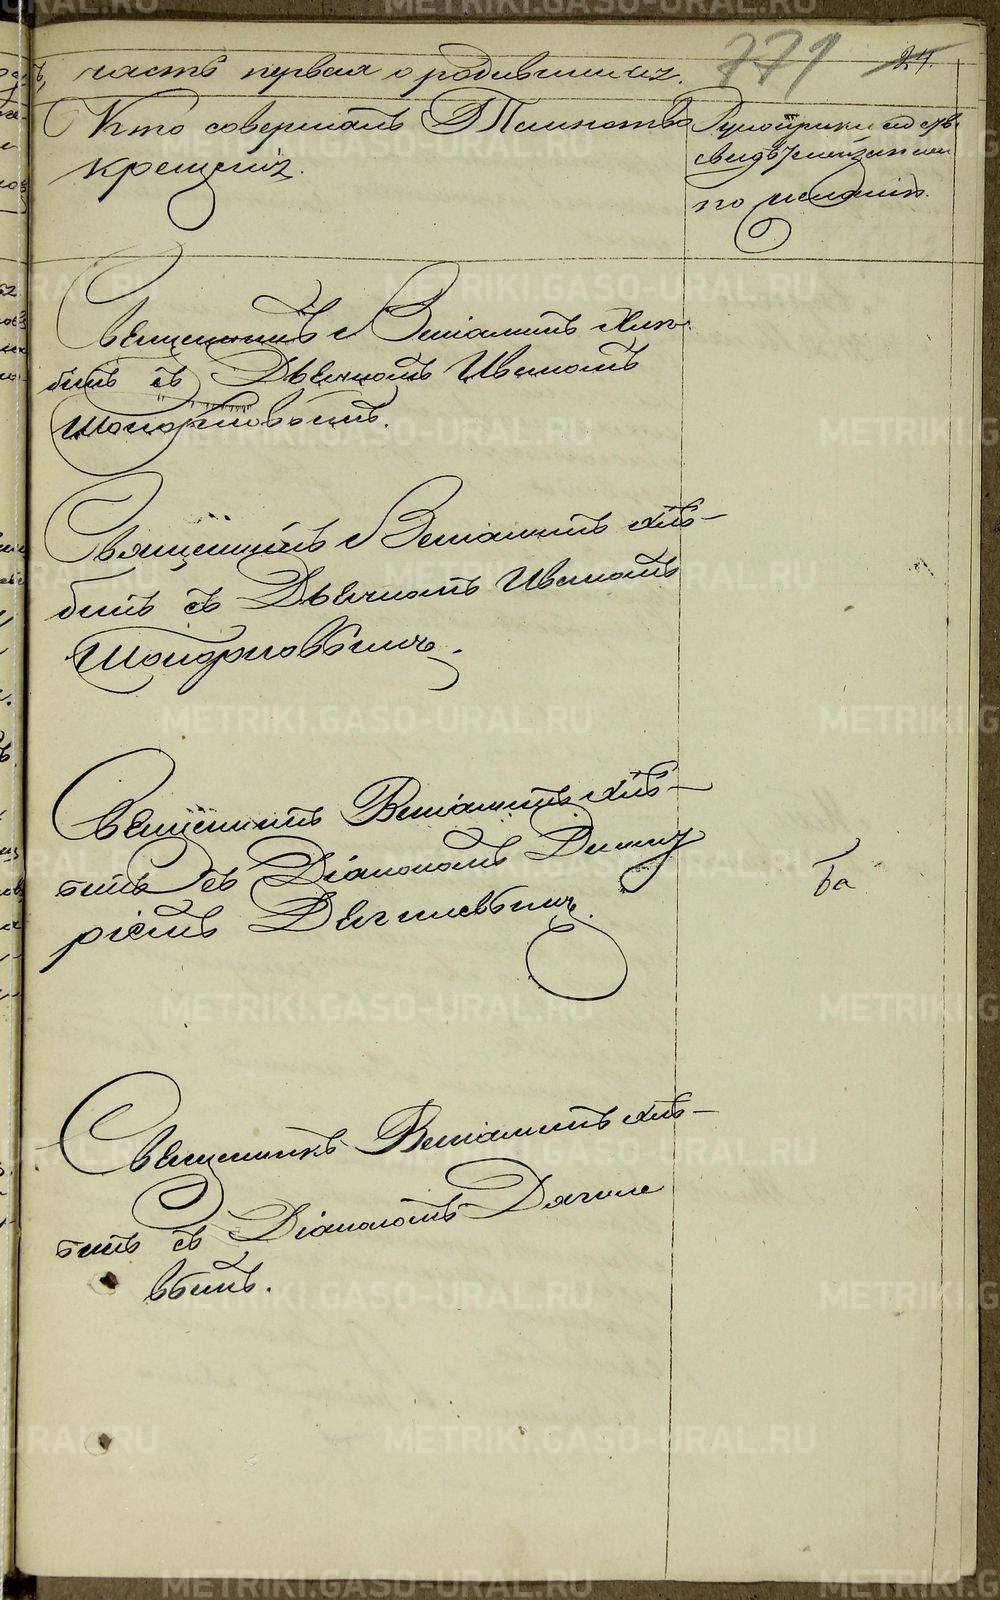 часть первая о родившихся. 771 24.
Кто совершалъ Таинство
крещенія.
Рукоприкладство
свидѣтелей записи
по желанію.
Священникъ Веніаминъ Хлѣ-
бинъ съ Дьячкомъ Иваномъ
Топорковымъ.
Священникъ Веніаминъ Хлѣ-
бинъ съ Дьячкомъ Иваномъ
Топорковымъ.
Священникъ Веніаминъ Хлѣ-
бинъ съ Діакономъ
Дягилевымъ.
Священникъ Веніаминъ Хлѣ-
бинъ съ Діакономъ Дягиле
вымъ.
METRIKI.GASO-URAL.RU